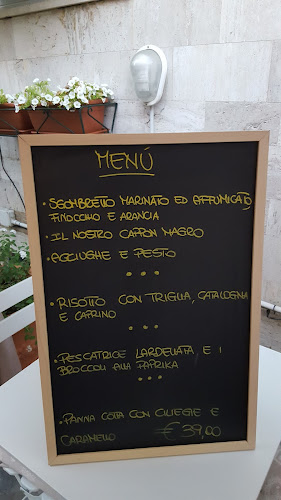 MENÚ
• SGOMBRETTO MARINATO ED AFFUMICATO,
FINOCCHIO E ARANCIA
• IL NOSTRO CAPPON MAGRO
• ACCIUGHE E PESTO
• • •
• RISOTTO CON TRIGLIA, CATALOGNA
E CAPRINO
• • •
• PESCATRICE LARDELLATA, E I
BROCCOLI ALLA PAPRIKA
• • •
• PANNA COTTA CON CILIEGIE E
CARAMELLO
€ 39,00